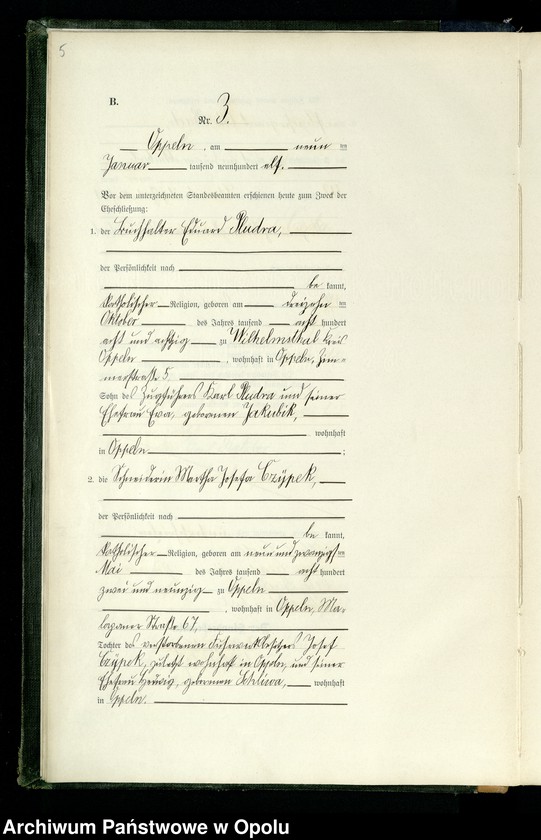 5
B.
Nr. 3.
Oppeln, am neun ten
Januar tausend neunhundert elf.
Vor dem unterzeichneten Standesbeamten erschienen heute zum Zweck der
Eheschließung:
1. der Buchhalter Eduard Mudra,
der Persönlichkeit nach
be kannt,
katholischer Religion, geboren am dreizehn ten
Oktober des Jahres tausend acht hundert
acht und achtzig zu Wilhelmsthal Kreis
Oppeln, wohnhaft in Oppeln, Zim-
merstraße 5
Sohn des Zugführers Karl Mudra und seiner
Ehefrau Eva, geborenen Jakubik,
wohnhaft
in Oppeln ;
2. die Schneiderin Martha Josefa Czÿpek,
der Persönlichkeit nach
be kannt,
katholischer Religion, geboren am neunundzwanzigs ten
Mai des Jahres tausend acht hundert
zwei und neunzig zu Oppeln
, wohnhaft in Oppeln, Ma-
lapaner Straße 67,
Tochter des verstorbenen Fuhrwerksbesitzers Josef
Czÿpek, zuletzt wohnhaft in Oppeln, und seiner
Ehefrau Hedwig, geborenen Schliwa, wohnhaft
in Oppeln.
Archiwum Państwowe w Opolu